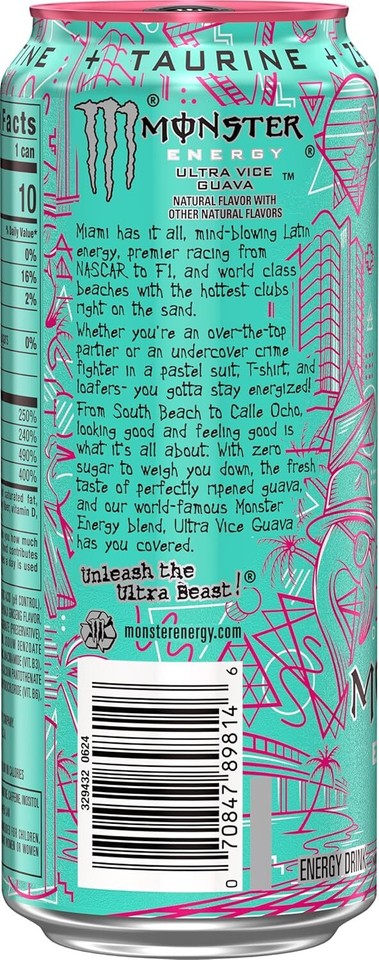 NE + TAURINE + ZE
MONSTER
ENERGY
ULTRA VICE
GUAVA ™
NATURAL FLAVOR WITH
OTHER NATURAL FLAVORS
Miami has it all, mind-blowing Latin
energy, premier racing from
NASCAR to F1, and world class
beaches with the hottest clubs
right on the sand.
Whether you're an over-the-top
partier or an undercover crime
fighter in a pastel suit, T-shirt, and
loafers- you gotta stay energized!
From South Beach to Calle Ocho,
looking good and feeling good is
what it's all about. With zero
sugar to weigh you down, the fresh
taste of perfectly ripened guava,
and our world-famous Monster
Energy blend, Ultra Vice Guava
has you covered.
Unleash the
Ultra Beast!®
monsterenergy.com
329432 0624
0 70847 89814 6
Facts
1 can
10
% Daily Value*
0%
16%
2%
0%
250%
240%
490%
400%
saturated fat,
vitamin D,
you how much
contributes
a day is used
ENERGY DRINK